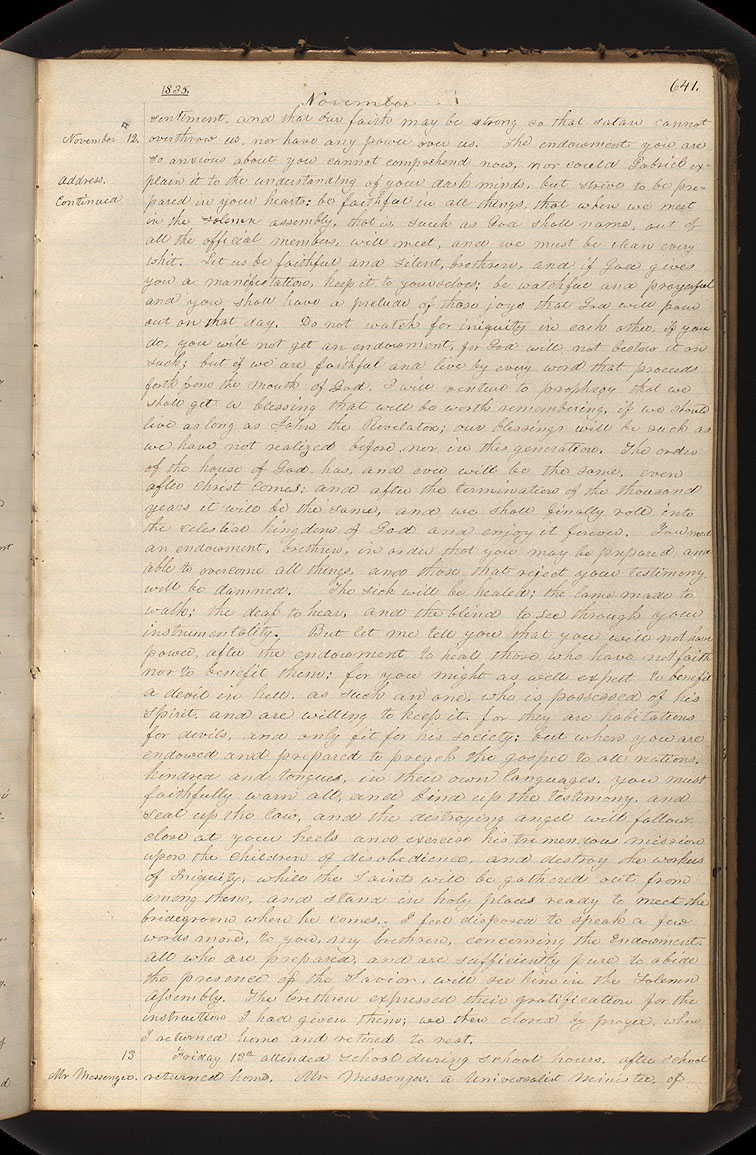 1835.
641.
November
sentiment, and that our faith may be strong so that satan cannot
November 12.
overthrow us, nor have any power over us. The endowment you are
so anxious about you cannot comprehend now, nor could Gabriel ex-
address.
plain it to the understanding of your dark minds, but strive to be pre-
Continued
pared in your hearts; be faithful in all things, that when we meet
in the solemn assembly, that is, such as God shall name, out of
all the official members, will meet, and we must be clean every
whit. Let us be faithful and silent, brethren, and if God gives
you a manifestation, keep it to yourselves; be watchful and prayerful
and you shall have a prelude of those joys that God will pour
out on that day. Do not watch for iniquity in each other, if you
do, you will not get an endowment, for God will not bestow it on
such; but if we are faithful and live by every word that proceeds
forth from the mouth of God, I will venture to prophesy that we
shall get a blessing that will be worth remembering, if we should
live as long as John the Revelator; our blessings will be such as
we have not realized before, nor in this generation. The order
of the house of God has, and ever will be the same, even
after Christ comes; and after the termination of the thousand
years it will be the same, and we shall finally roll into
the celestial kingdom of God and enjoy it forever. You need
an endowment, brethren, in order that you may be prepared and
able to overcome all things, and those that reject your testimony
will be damned. The sick will be healed; the lame made to
walk; the deaf to hear, and the blind to see through your
instrumentality. But let me tell you that you will not have
power, after the endowment to heal those who have not faith
nor to benefit them; for you might as well expect to benefit
a devil in hell, as such an one, who is possessed of his
spirit, and are willing to keep it. for they are habitations
for devils, and only fit for his society; but when you are
endowed and prepared to preach the gospel to all nations,
kindred and tongues, in their own languages, you must
faithfully warn all, and bind up the testimony, and
seal up the law, and the destroying angel will follow
close at your heels and exercise his tremendous mission
upon the children of disobedience, and destroy the workers
of Iniquity, while the Saints will be gathered out from
among them, and stand in holy places ready to meet the
bridegroom when he comes. I feel disposed to speak a few
words more, to you, my brethren, concerning the Endowment.
all who are prepared, and are sufficiently pure to abide
the presence of the Savior, will see him in the solemn
assembly. The brethren expressed their gratification for the
instruction I had given them; we then closed by prayer, when
I returned home and retired to rest.
13
Friday 13th attended school during school hours. after school
Mr Messenger.
returned home. Mr Messenger, a Universalist Minister, of